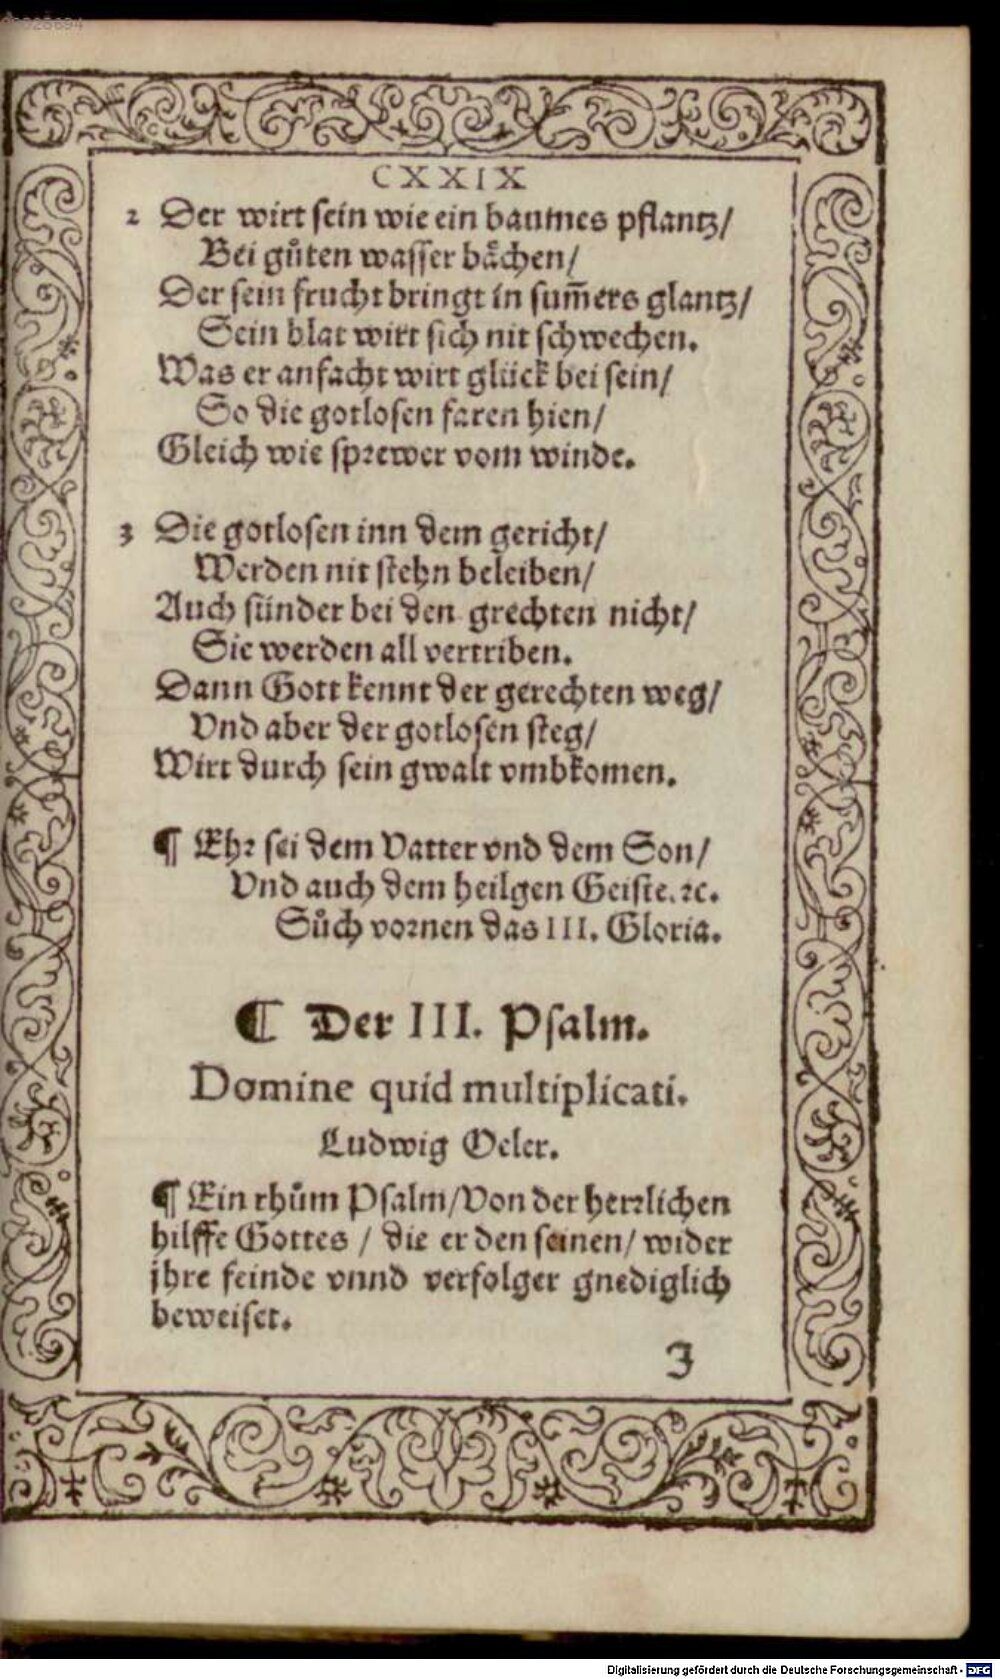 CXXIX
2 Der wirt sein wie ein baumes pflantz/
Bei gůten wasser båchen/
Der sein frucht bringt in sum̄ers glantz/
Sein blat wirt sich nit schwechen.
Was er anfacht wirt glück bei sein/
So die gotlosen faren hien/
Gleich wie sprewer vom winde.
3 Die gotlosen inn dem gericht/
Werden nit stehn beleiben/
Auch sünder bei den grechten nicht/
Sie werden all vertriben.
Dann Gott kennt der gerechten weg/
Vnd aber der gotlosen steg/
Wirt durch sein gwalt vmbkomen.
¶ Ehr sei dem Vatter vnd dem Son/
Vnd auch dem heilgen Geiste. ꝛc.
Sůch vornen das III. Gloria.
¶ Der III. Psalm.
Domine quid multiplicati.
Ludwig Oeler.
¶ Ein rhům Psalm/Von der herrlichen
hilffe Gottes / die er den seinen/ wider
jhre feinde vnnd verfolger gnediglich
beweiset.
J
Digitalisierung gefördert durch die Deutsche Forschungsgemeinschaft - DFG